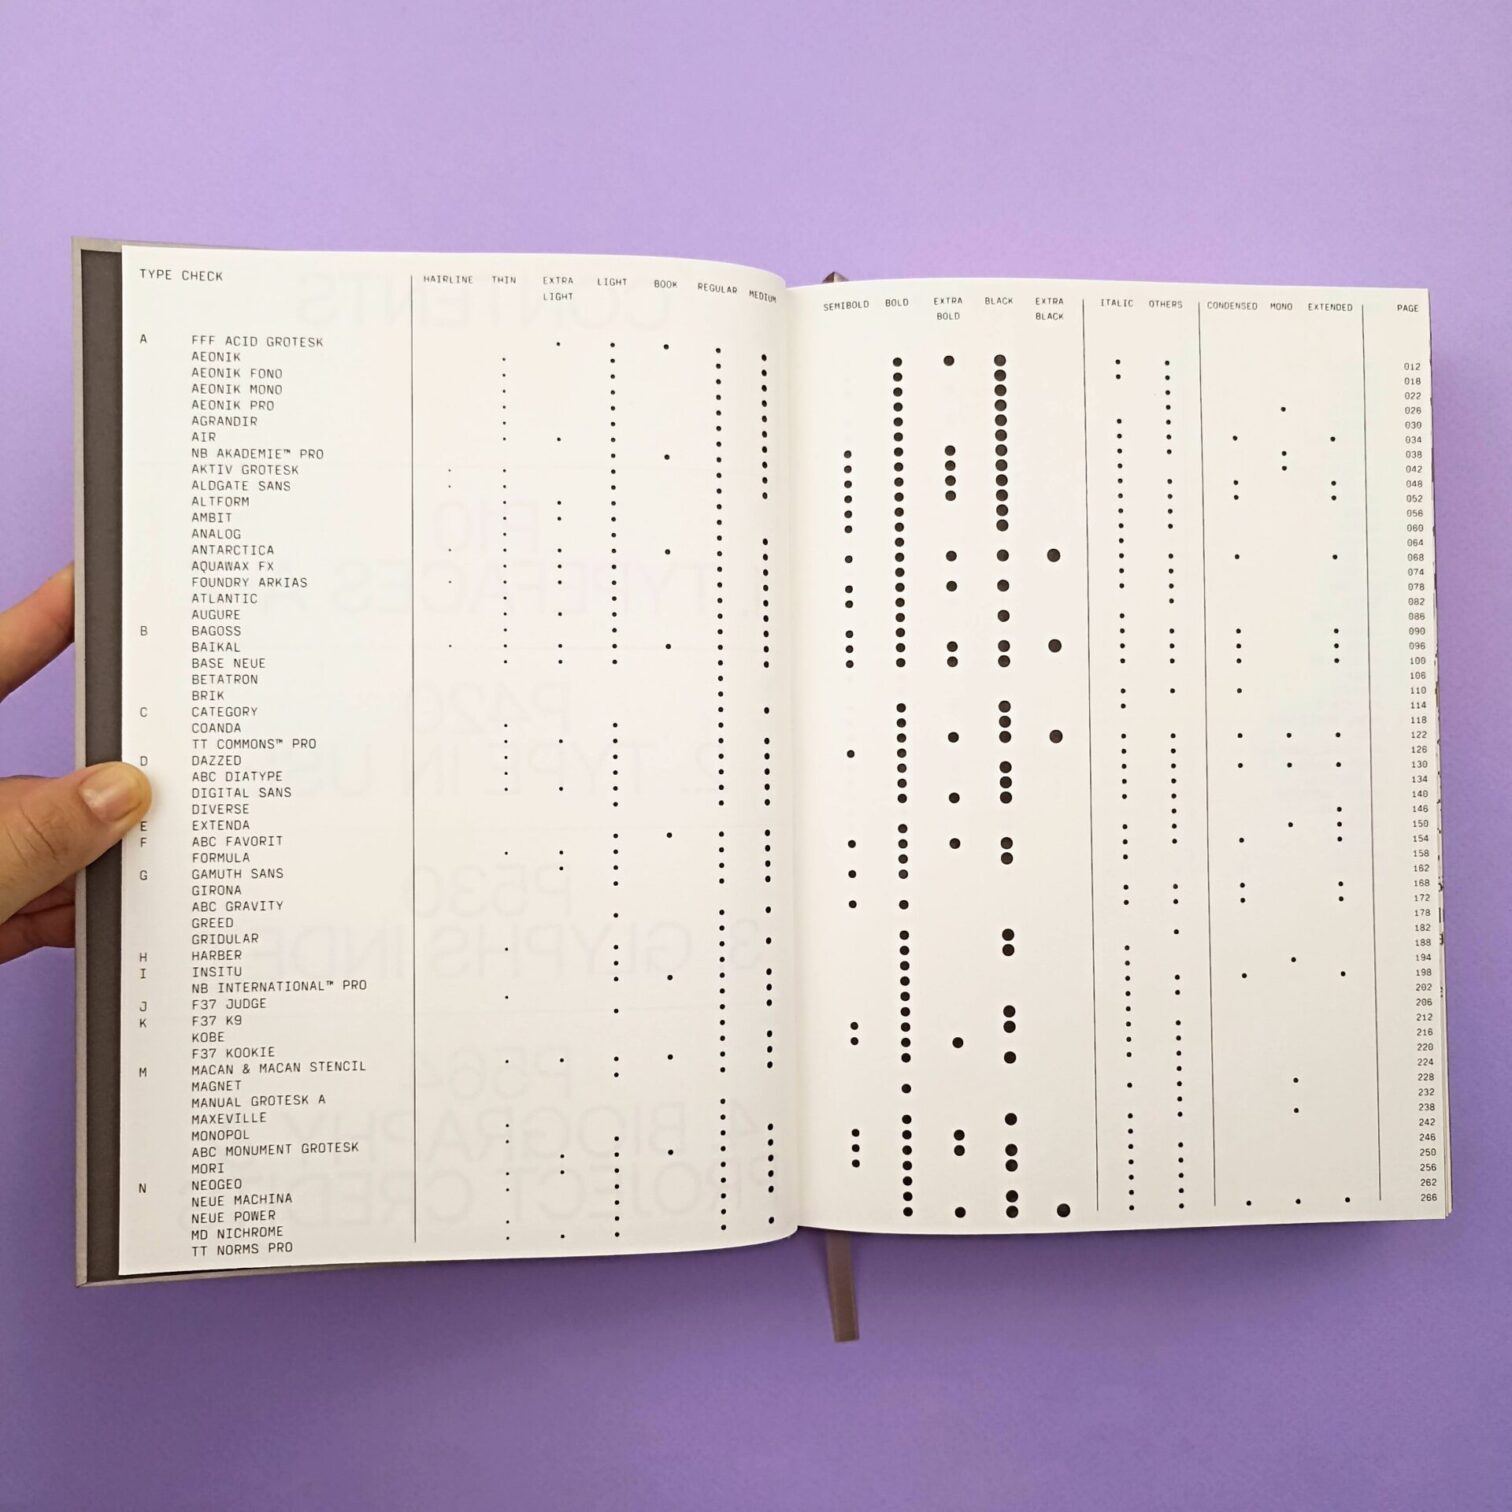 TYPE CHECK
HAIRLINE THIN EXTRA LIGHT LIGHT BOOK REGULAR MEDIUM
A FFF ACID GROTESK
AEONIK
AEONIK FONO
AEONIK MONO
AEONIK PRO
AGRANDIR
AIR
NB AKADEMIE™ PRO
AKTIV GROTESK
ALDGATE SANS
ALTFORM
AMBIT
ANALOG
ANTARCTICA
AQUAWAX FX
FOUNDRY ARKIAS
ATLANTIC
AUGURE
B BAGOSS
BAIKAL
BASE NEUE
BETATRON
BRIK
C CATEGORY
COANDA
TT COMMONS™ PRO
D DAZZED
ABC DIATYPE
DIGITAL SANS
DIVERSE
E EXTENDA
F ABC FAVORIT
FORMULA
G GAMUTH SANS
GIRONA
ABC GRAVITY
GREED
GRIDULAR
H HARBER
I INSITU
NB INTERNATIONAL™ PRO
J F37 JUDGE
K F37 K9
KOBE
F37 KOOKIE
M MACAN & MACAN STENCIL
MAGNET
MANUAL GROTESK A
MAXEVILLE
MONOPOL
ABC MONUMENT GROTESK
MORI
N NEOGEO
NEUE MACHINA
NEUE POWER
MD NICHROME
TT NORMS PRO
SEMIBOLD BOLD EXTRA BOLD BLACK EXTRA BLACK ITALIC OTHERS CONDENSED MONO EXTENDED PAGE
012
018
022
026
030
034
038
042
048
052
056
060
064
068
074
078
082
086
090
096
100
106
110
114
118
122
126
130
134
140
146
150
154
158
162
168
172
178
182
188
194
198
202
206
212
216
220
224
228
232
238
242
246
250
256
262
266